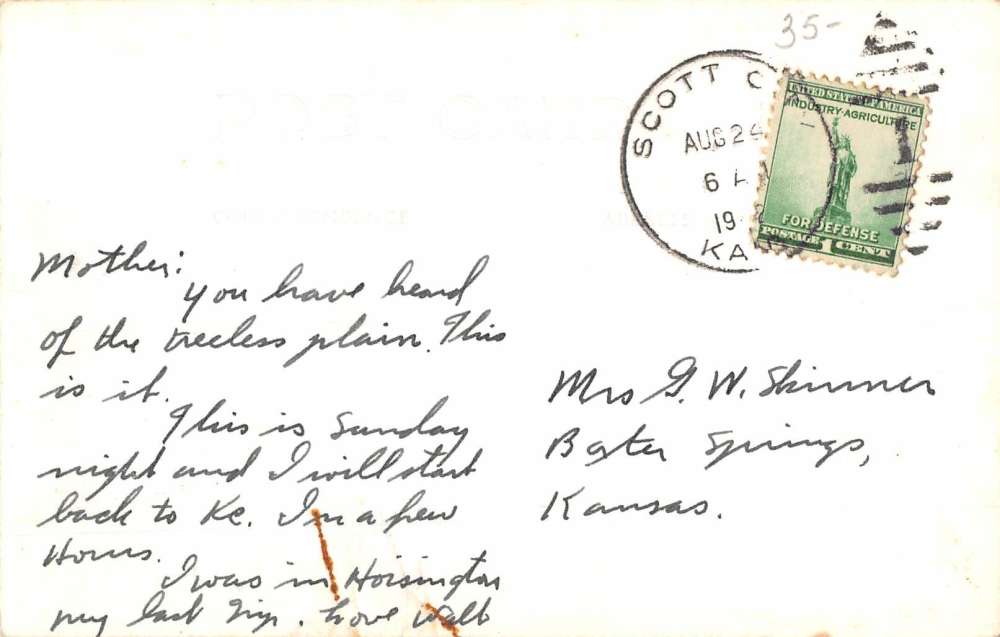 35-
SCOTT C
AUG 24
6 A
19
KA
UNITED STATES OF AMERICA
INDUSTRY-AGRICULTURE
FOR DEFENSE
POSTAGE 1 CENT
Mother:
You have heard
of the treeless plain. This
is it.
This is Sunday
night and I will start
back to Kc. In a few
Hours.
I was in Hoisington
my last Trip. Love Walt
Mrs G. W. Skinner
Baxter Springs,
Kansas.